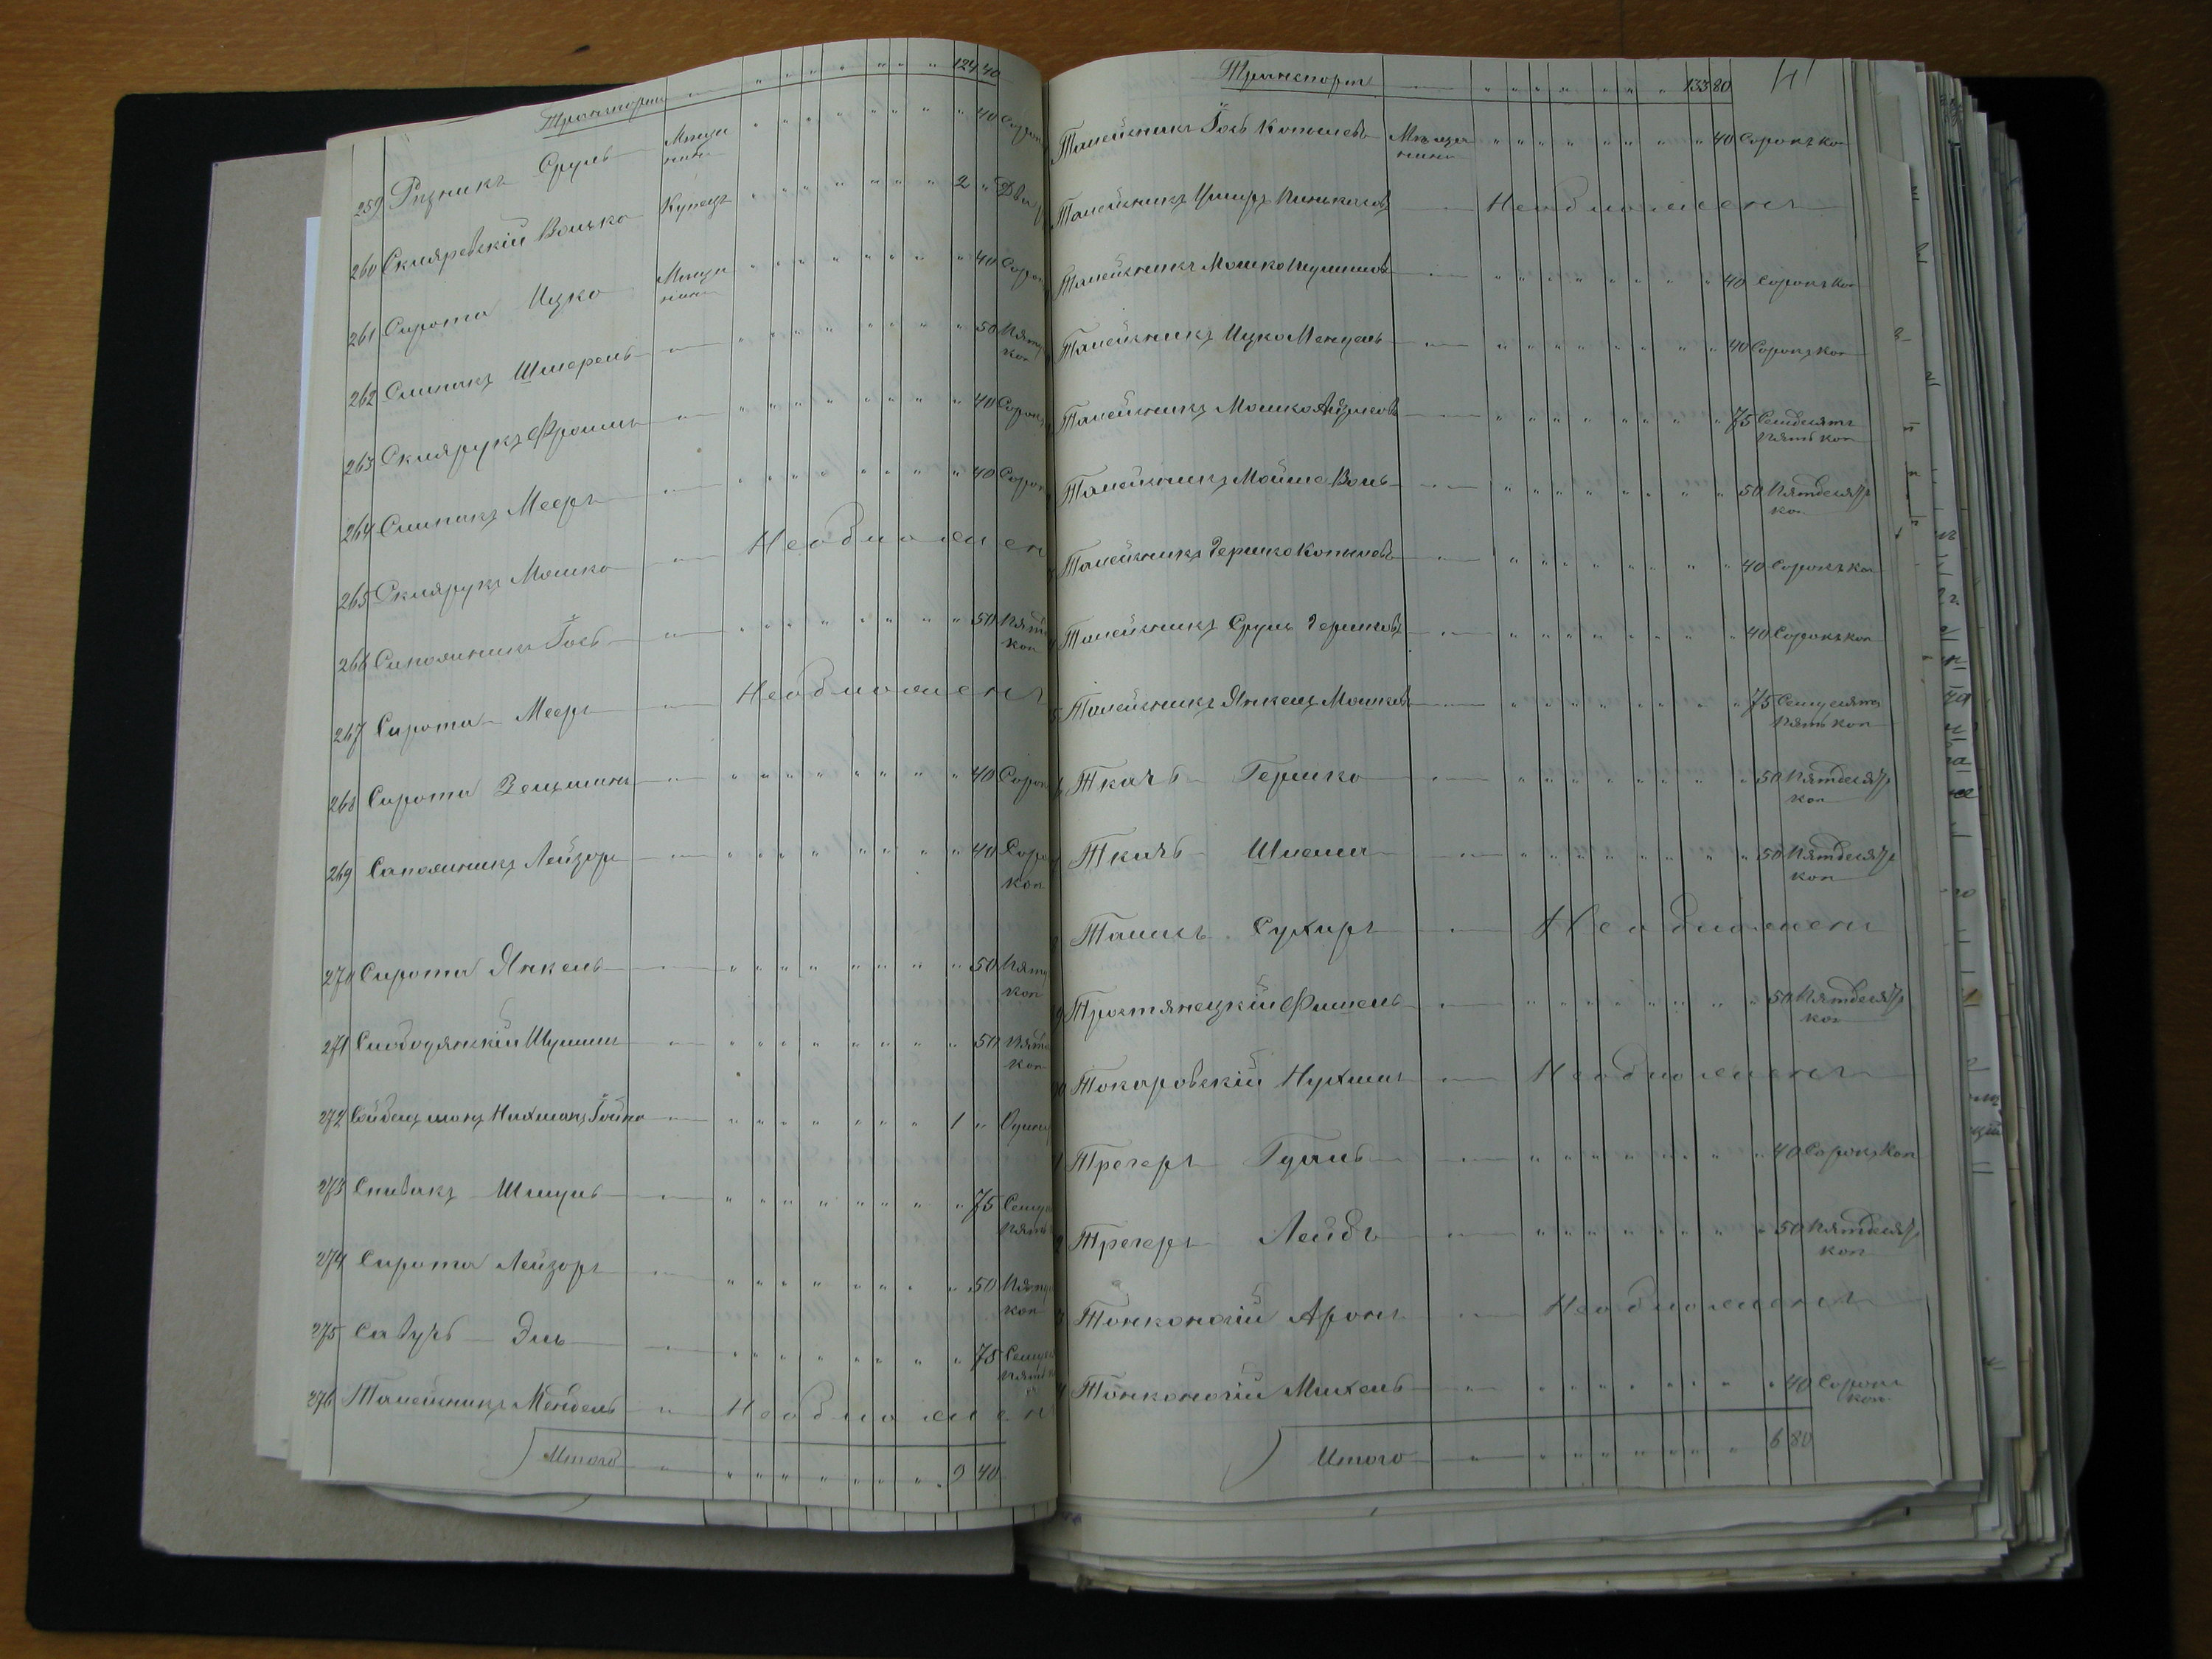 Транспортъ " " " " " " " " 124 40
259 Резникъ Сруль Мѣщанинъ " " " " " " " " 40 Сорок
260 Скляревскій Волько Купецъ " " " " " " " 2 " Два р
261 Сирота Ицко Мѣщанинъ " " " " " " " " 40 Сорок
262 Слипакъ Шмерель " " " " " " " " " 50 Пятд
коп
263 Склярукъ Фроимъ " " " " " " " " " 40 Сорокъ
264 Слипакъ Мееръ " " " " " " " " " 40 Сорок
265 Склярукъ Мошко " Необложен
266 Сапожникъ Іось " " " " " " " " " 50 Пятд
коп
267 Сирота Мееръ " Необложенъ
268 Сирота Зельманъ " " " " " " " " " 40 Сорок
269 Сапожникъ Лейзоръ " " " " " " " " " 40 Соро
коп
270 Сирота Янкель " " " " " " " " " 50 Пятд
коп
271 Слободянскій Шулимъ " " " " " " " " " 50 Пятд
коп
272 Нахманъ " " " " " " " " 1 " Один
273 Спивакъ Шмуль " " " " " " " " " 75 Семд
Пять
274 Сирота Лейзоръ " " " " " " " " " 50 Пятд
коп
275 Савучъ Эль " " " " " " " " " 75 Семд
Пять
276 Талейсникъ Мендель " Необложен
Итого " " " " " " " " " 9 40
Транспортъ " " " " " " " " 133 80
Талейсникъ Іось Копылевъ Мѣщанинъ " " " " " " " " 40 Сорокъ коп
Талейсникъ Пинкасовъ " Необложенъ
Талейсникъ Мошко Шулимовъ " " " " " " " " " 40 Сорокъ коп
Талейсникъ Ицко Мендель " " " " " " " " " 40 Сорокъ коп
Талейсникъ Мошко Айзиковъ " " " " " " " " " 75 Семдесятъ
Пять коп
Талейсникъ Мойше Воль " " " " " " " " " 50 Пятдесятъ
коп
Талейсникъ Гершко Копылевъ " " " " " " " " " 40 Сорокъ коп
Талейсникъ Сруль Гершковъ " " " " " " " " " 40 Сорокъ коп
Талейсникъ Янкель Мошковъ " " " " " " " " " 75 Семдесятъ
Пять коп
Ткачъ Гершко " " " " " " " " " 50 Пятдесятъ
коп
Ткачъ Шлема " " " " " " " " " 50 Пятдесятъ
коп
Сухаръ " Необложенъ
Тростянецкій Фишель " " " " " " " " " 50 Пятдесятъ
коп
Токаровскій Нухимъ " Необложенъ
Трегеръ Гдаль " " " " " " " " " 40 Сорокъ коп
Трегеръ Лейбъ " " " " " " " " " 50 Пятдесятъ
коп
Тонконогій Аронъ " Необложенъ
Тонконогій Михель " " " " " " " " " 40 Сорокъ
коп
Итого " " " " " " " " 6 80